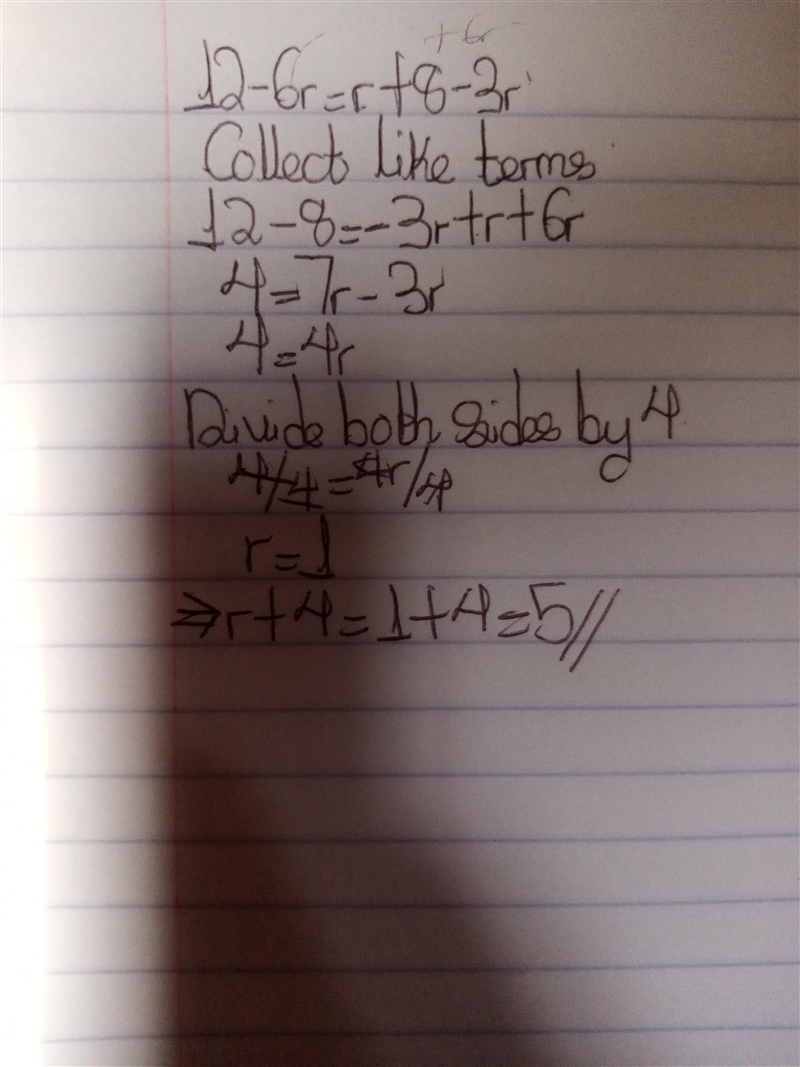 +6r
12-6r=r+8-3r
Collect like terms
12-8=-3r+r+6r
4=7r-3r
4=4r
Divide both sides by 4
4/4=4r/4
r=1
⇒r+4=1+4=5//